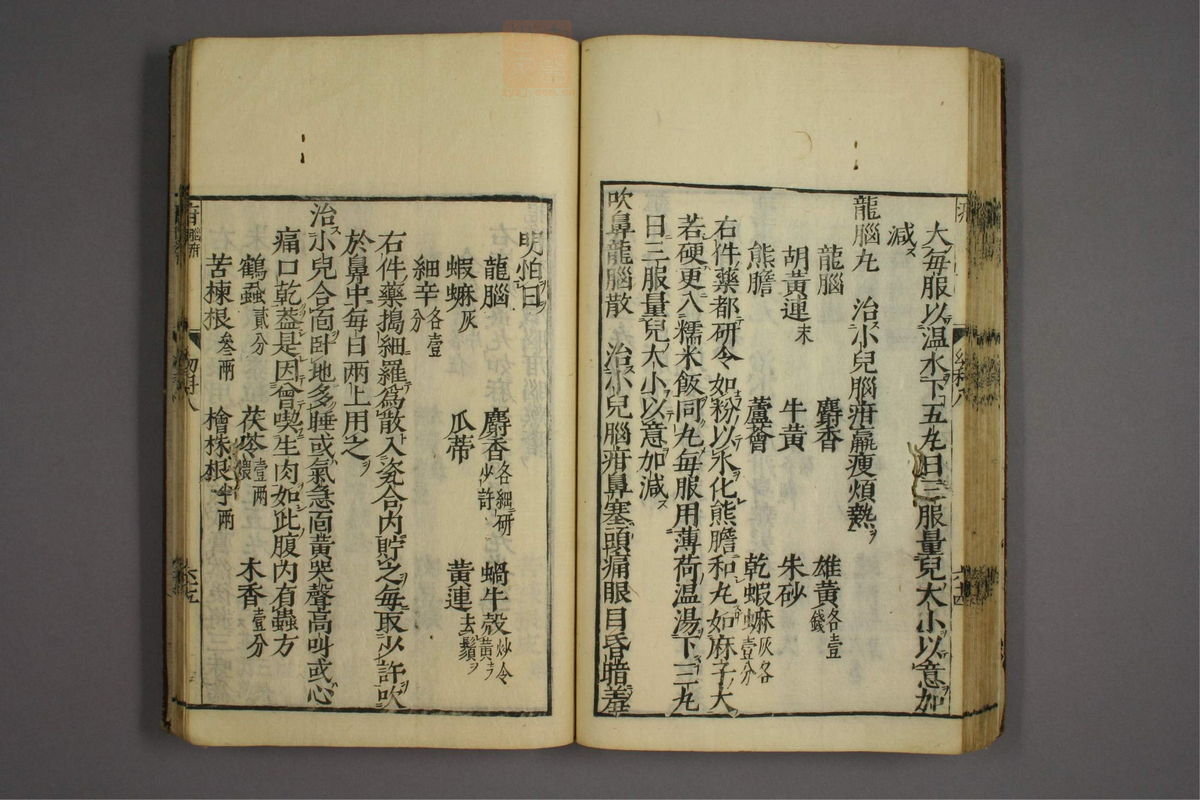 大每服以温水下五丸日三服量兒大小以意加
減ス
龍腦丸 治小兒腦疳羸瘦煩熱ヲ
龍腦 麝香 雄黄各壹錢
胡黄連末 牛黄 朱砂
熊膽 蘆薈 乾蝦蟇灰各壹分
右件藥都研令如粉以水化熊膽和丸如麻子大
若硬更入糯米飯同丸每服用薄荷温湯下三丸
日三服量兒大小以意加減ス
吹鼻龍腦散 治小兒腦疳鼻塞頭痛眼目昏暗羞
明怕日ヲ
龍腦 麝香各細研少許 蝸牛殼炒令黄
蝦蟇灰 瓜蒂 黄連去鬚
細辛各壹分
右件藥搗細羅爲散入瓷合内貯之每取少許吹
於鼻中每日兩上用之
治小兒合面卧地多睡或氣急面黄哭聲高叫或心
痛口乾葢是因曾喫生肉如此腹内有蟲方
鶴蝨貳分 茯苓壹兩 木香壹分
苦楝根叁兩 檜株根半兩
幼科八
六十五